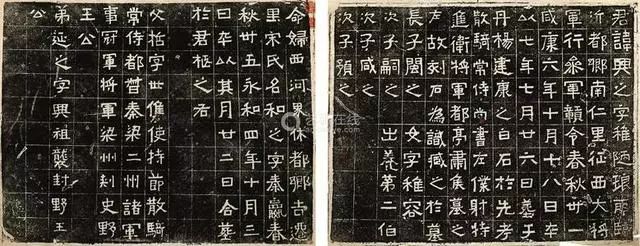 君諱興之字稚陋琅耶臨
沂都鄉南仁里征西大將
軍行參軍贛令春秋卅一
咸康六年十月十八日卒
以七年七月廿六日葬于
丹楊建康之白石於先考
散騎常侍尚書左僕射特
進衛將軍都亭肅侯墓之
左故刻石為識臧之於墓
長子閩之 女字稚容
次子嗣之 出養第二伯
次子咸之
次子預之
命婦西河界休都鄉吉遷
里宋氏名和之字秦嬴春
秋卅五永和四年十月三
日卒以其月廿二日合葬
於君柩之右
父哲字世儁使持節散騎
常侍都督秦梁二州諸軍
事冠軍將軍梁州刺史野
王公
弟延之字興祖襲封野王
公